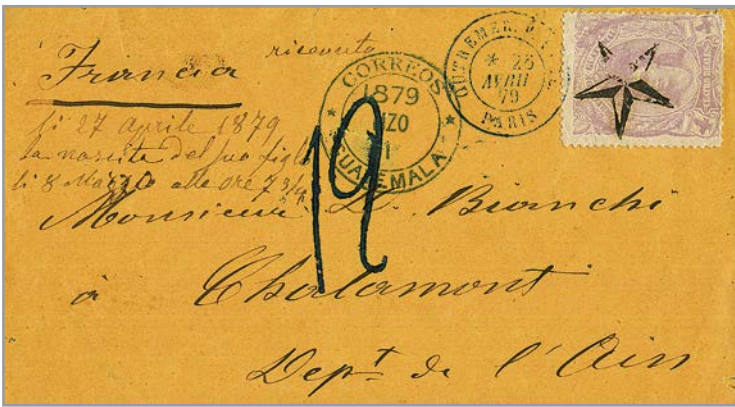 Francia
ricevuta
li 27 Aprile 1879
la nascita del suo figlio
li 8 Marzo alle ore 7 3/4
CORREOS
1879
MZO
1
GUATEMALA
OUTREMER
* 26
AVRIL
79
PARIS
CUATRO REALES
12
Monsieur L. Bianchi
à Chalamont
Dept de l'Ain